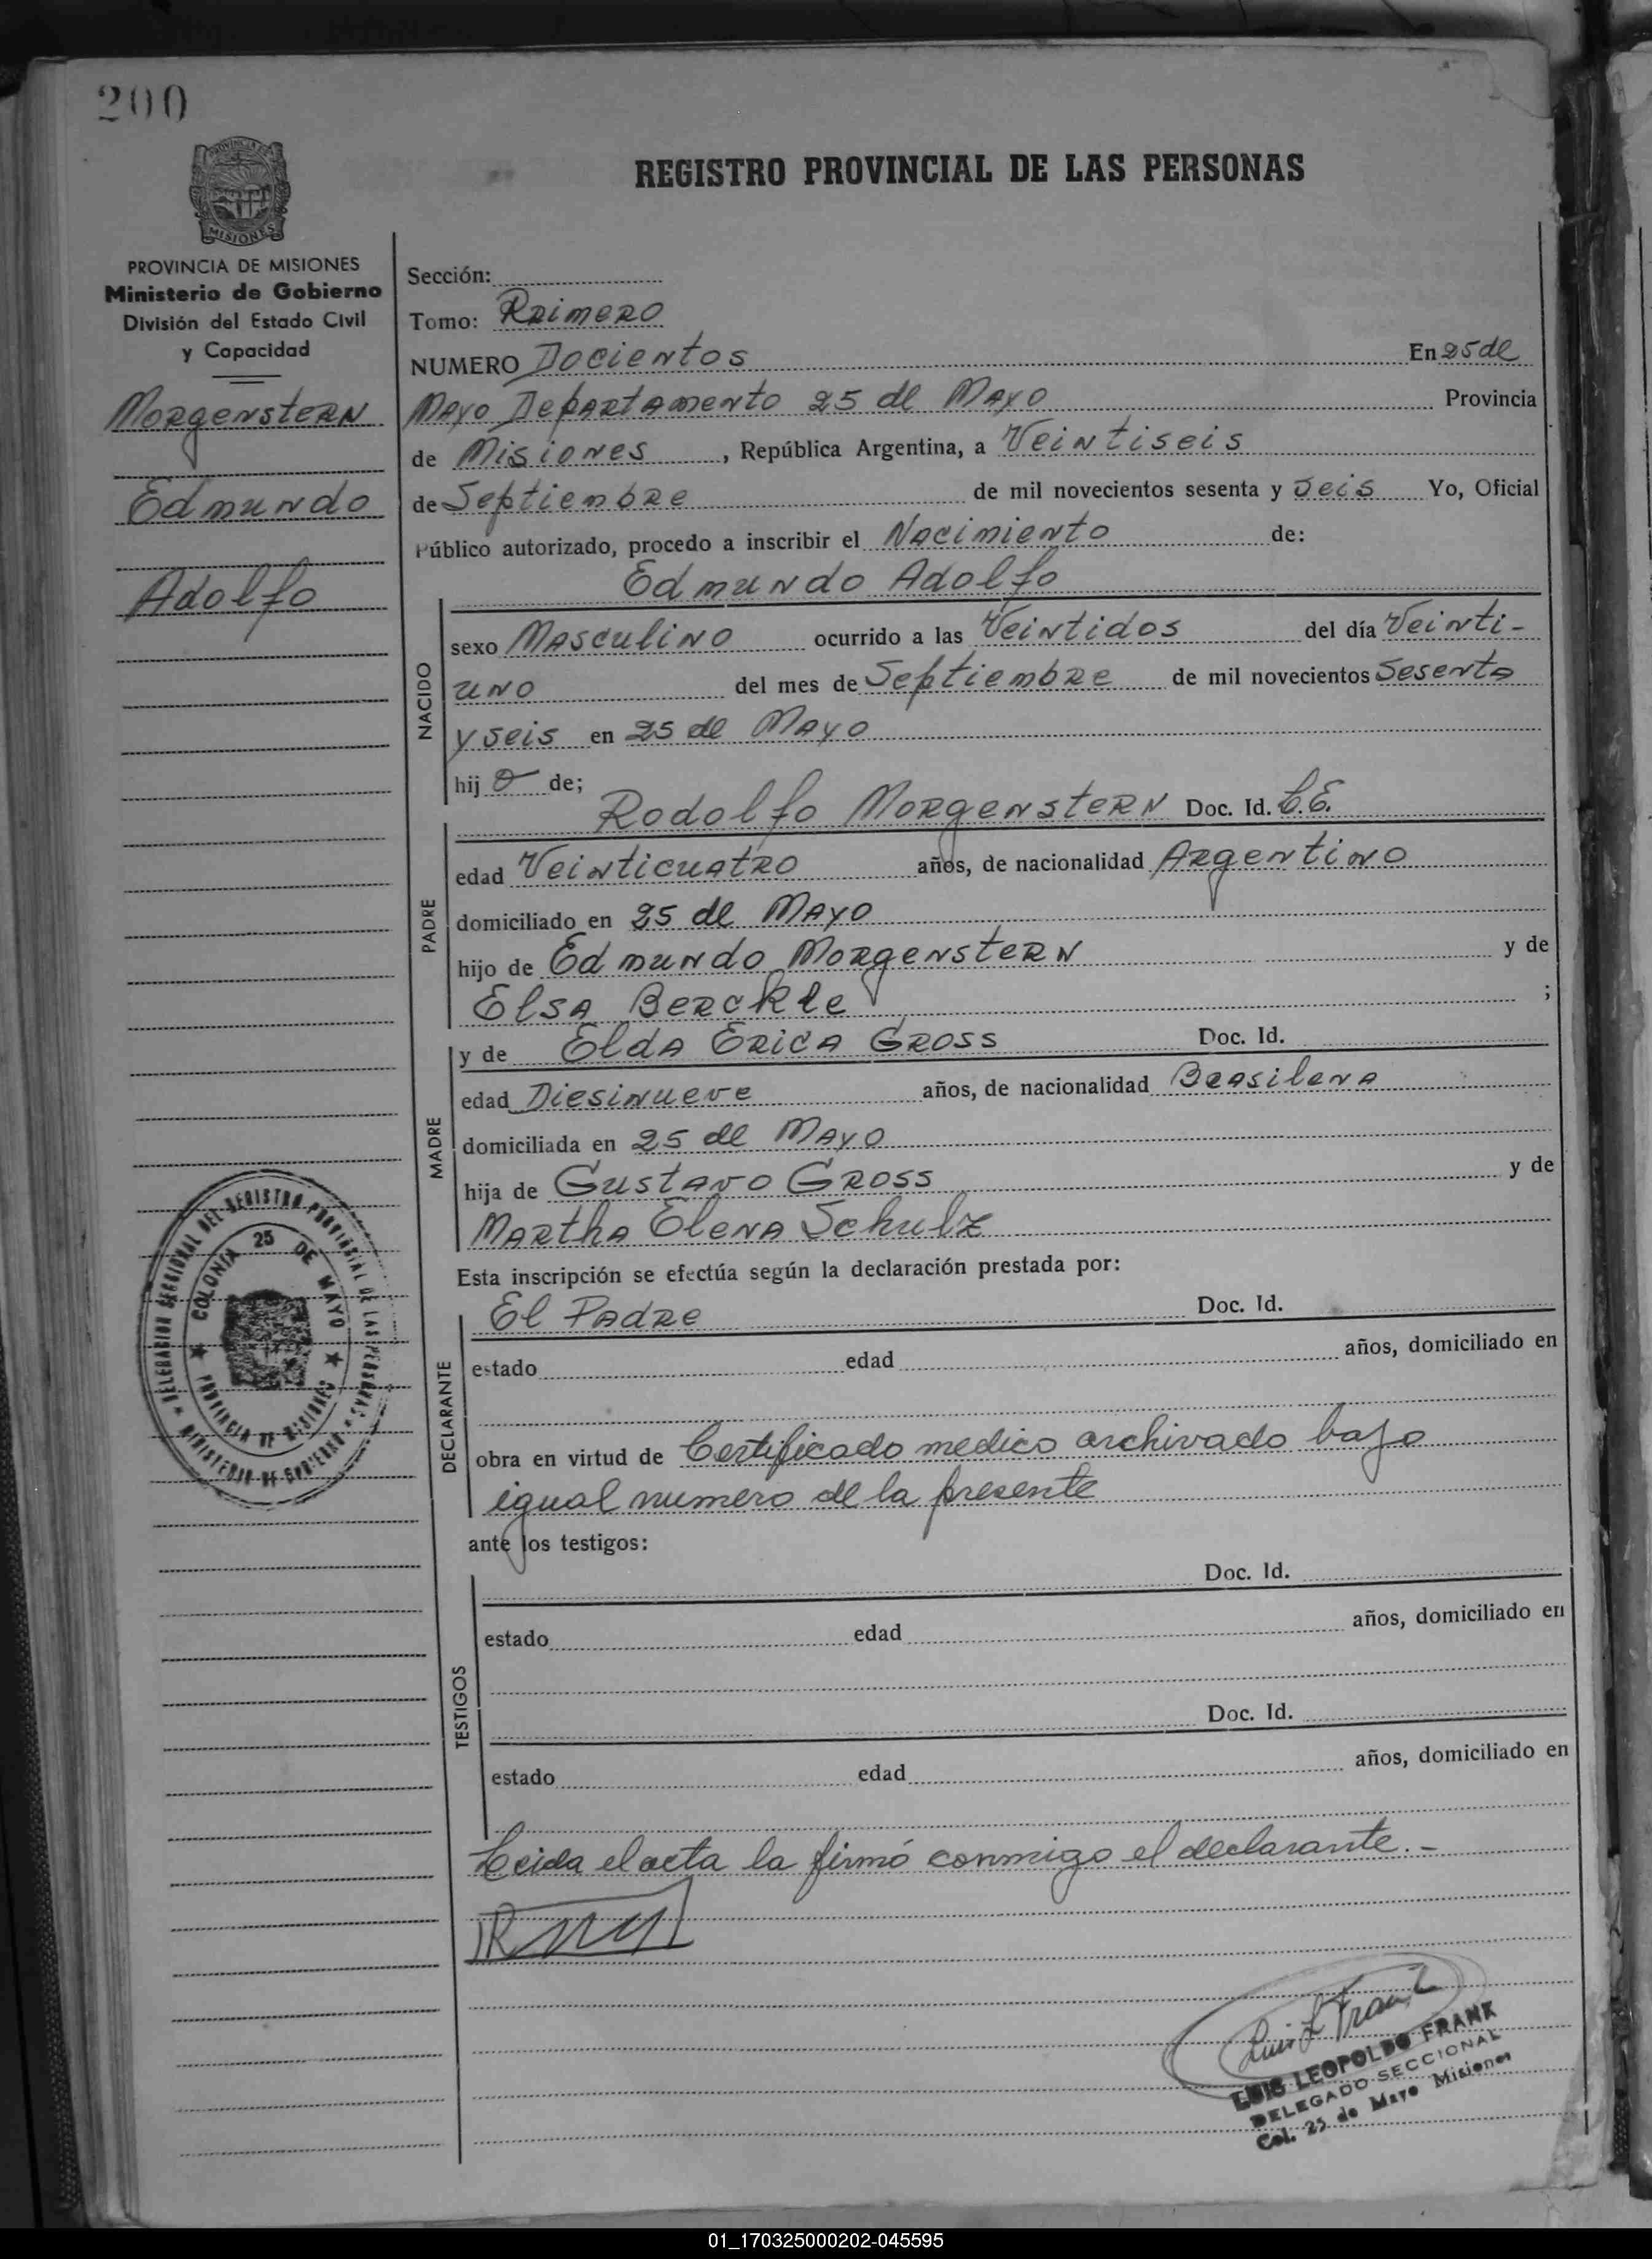 200
PROVINCIA DE MISIONES
REGISTRO PROVINCIAL DE LAS PERSONAS
PROVINCIA DE MISIONES
Ministerio de Gobierno
División del Estado Civil
y Capacidad
Morgenstern
Edmundo
Adolfo
Sección:
Tomo: Primero
NUMERO Docientos En 25 de
Mayo Departamento 25 de Mayo Provincia
de Misiones, República Argentina, a Veintiseis
de Septiembre de mil novecientos sesenta y seis Yo, Oficial
Público autorizado, procedo a inscribir el Nacimiento de:
Edmundo Adolfo
NACIDO
sexo Masculino ocurrido a las Veintidos del día Veinti-
uno del mes de Septiembre de mil novecientos Sesenta
y seis en 25 de Mayo
hijo de;
PADRE
Rodolfo Morgenstern Doc. Id. C.E.
edad Veinticuatro años, de nacionalidad Argentino
domiciliado en 25 de Mayo
hijo de Edmundo Morgenstern y de
Elsa Berckle ;
MADRE
y de Elda Erica Gross Doc. Id.
edad Diesinueve años, de nacionalidad Brasilena
domiciliada en 25 de Mayo
hija de Gustavo Gross y de
Martha Elena Schulz
Esta inscripción se efectúa según la declaración prestada por:
DECLARANTE
El Padre Doc. Id.
estado edad años, domiciliado en
obra en virtud de Certificado medico archivado bajo
igual numero de la presente
ante los testigos:
TESTIGOS
Doc. Id.
estado edad años, domiciliado en
Doc. Id.
estado edad años, domiciliado en
Leida el acta la firmó conmigo el declarante.-
DELEGACION SECCIONAL DEL REGISTRO PROVINCIAL DE LAS PERSONAS
MINISTERIO DE GOBIERNO
COLONIA 25 DE MAYO
PROVINCIA DE MISIONES
Luis L Frank
LUIS LEOPOLDO FRANK
DELEGADO SECCIONAL
Col. 25 de Mayo Misiones
01_170325000202-045595